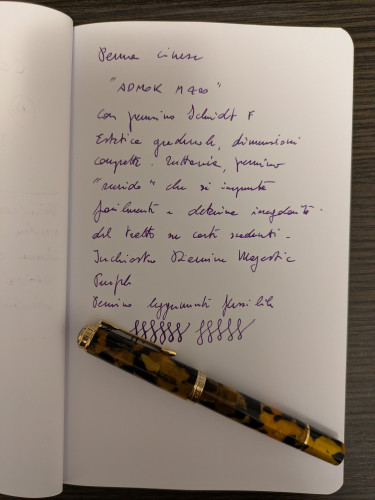 Penna cinese
"ADMOK M800"
con pennino Schmidt F
Estetica gradevole, dimensioni
compatte. Tuttavia, pennino
"ruvido" che si impunta
facilmente e determina irregolarità
del tratto su carte scadenti -
Inchiostro Diamine Majestic
Purple
Pennino leggermente flessibile